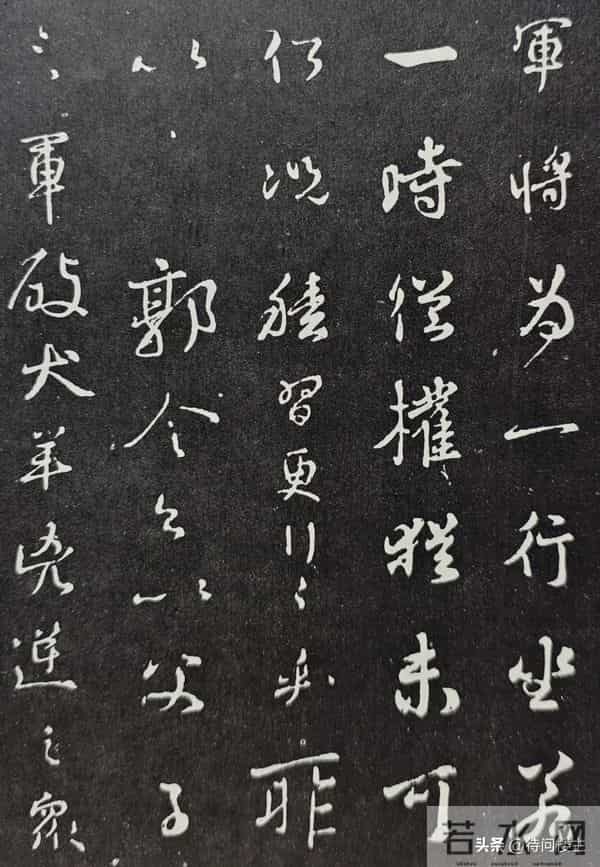 軍將為一行坐若
一時從權猶未可
何況積習更行之乎一昨
以郭令公以父子
之軍破犬羊兇逆之眾
若水网
头条 @待问